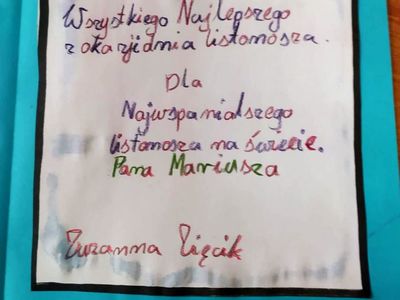 Wszystkiego Najlepszego
z okazji dnia listonosza.
Dla
Najwspanialszego
listonosza na świecie.
Pana Mariusza
Zuzanna Zięcik